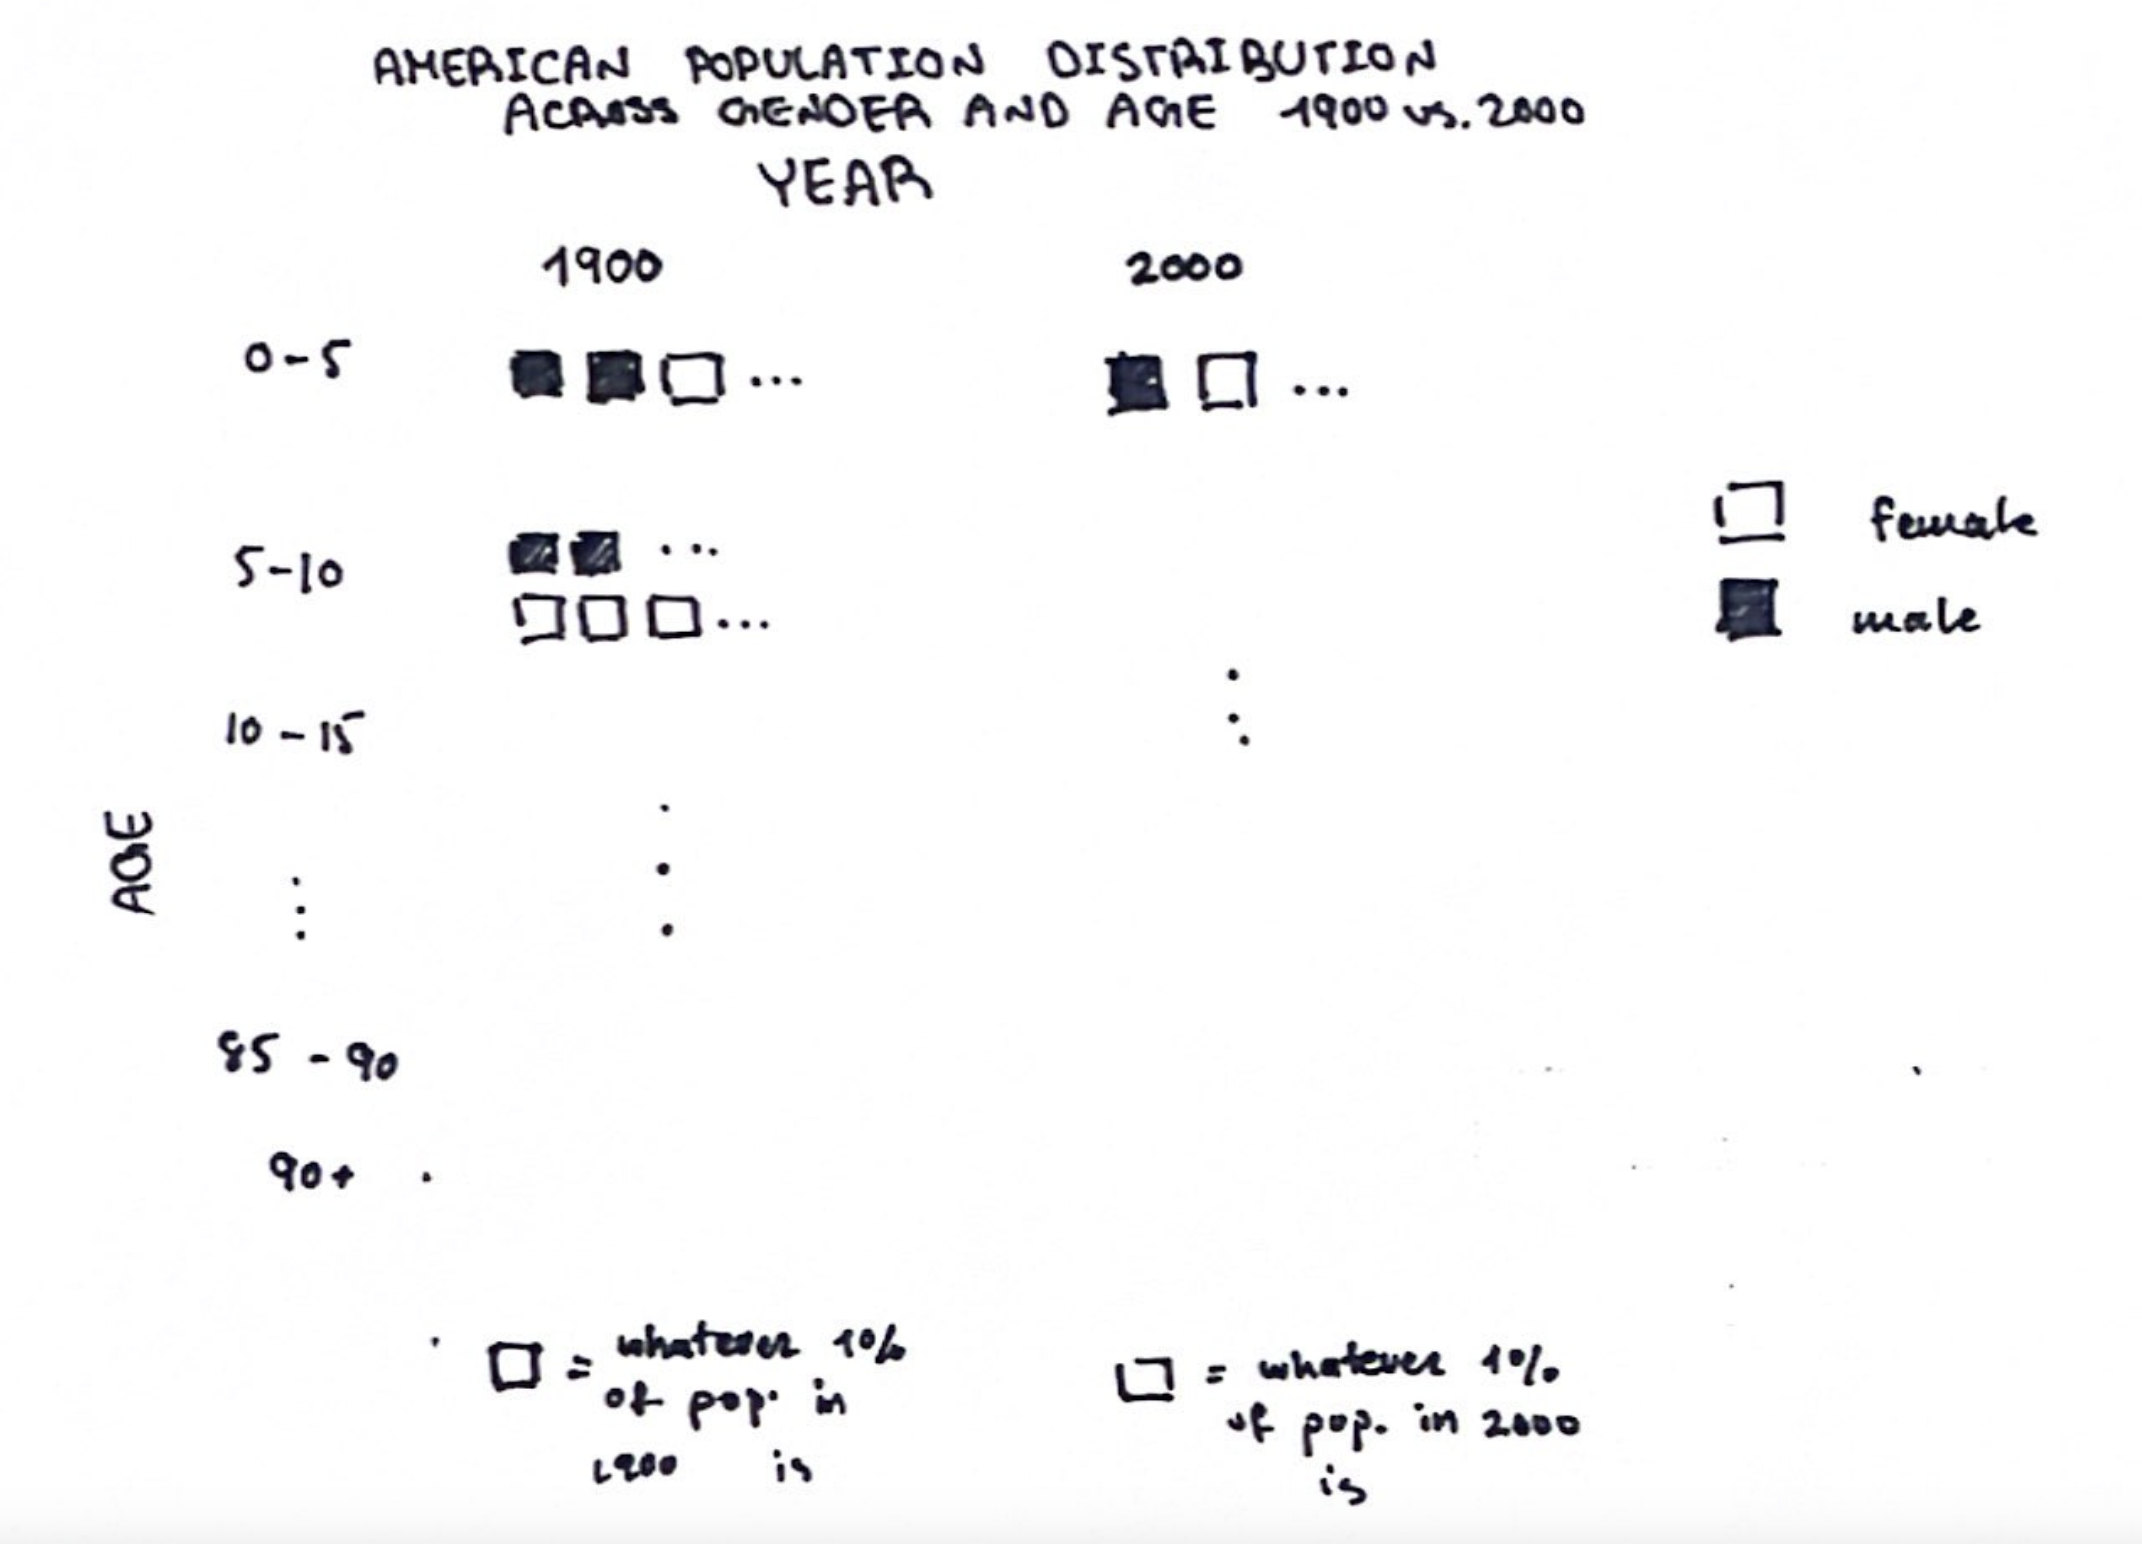 AMERICAN POPULATION DISTRIBUTION
ACROSS GENDER AND AGE 1900 vs. 2000
YEAR
1900 2000
0-5
5-10
10-15
AGE
85-90
90+
female
male
= whatever 1%
of pop. in
1900 is
= whatever 1%
of pop. in 2000
is